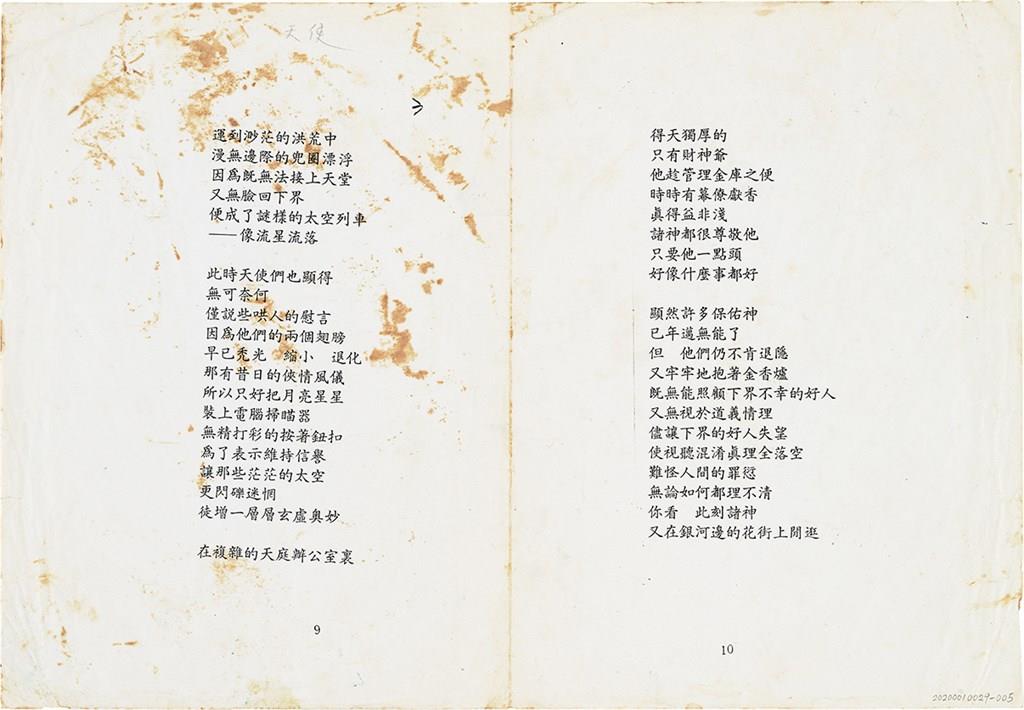 天使
運到渺茫的洪荒中
漫無邊際的兜圈漂浮
因爲旣無法接上天堂
又無臉回下界
便成了謎樣的太空列車
——像流星流落
此時天使們也顯得
無可奈何
僅說些哄人的慰言
因爲他們的兩個翅膀
早已禿光　縮小　退化
那有昔日的俠情風儀
所以只好把月亮星星
裝上電腦掃瞄器
無精打彩的按著鈕扣
爲了表示維持信譽
讓那些茫茫的太空
更閃礫迷惘
徒增一層層玄虛奥妙
在複雜的天庭辦公室裏
9
得天獨厚的
只有財神爺
他趁管理金庫之便
時時有幕僚獻香
眞得益非淺
諸神都很尊敬他
只要他一點頭
好像什麼事都好
顯然許多保佑神
已年邁無能了
但　他們仍不肯退隱
又牢牢地抱著金香爐
旣無能照顧下界不幸的好人
又無視於道義情理
儘讓下界的好人失望
使視聽混淆眞理全落空
難怪人間的罪愆
無論如何都理不清
你看　此刻諸神
又在銀河邊的花街上閒逛
10
20200010029-005